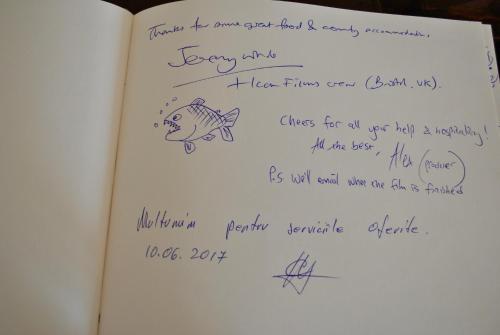 Thanks for some great food & comfy accommodation.
Jeremy Wade
+ Icon Films crew (Bristol, UK).
Cheers for all your help & hospitality!
All the best,
Alex (producer)
P.s we'll email when the film is finished
Multumim pentru serviciile oferite.
10.06.2017